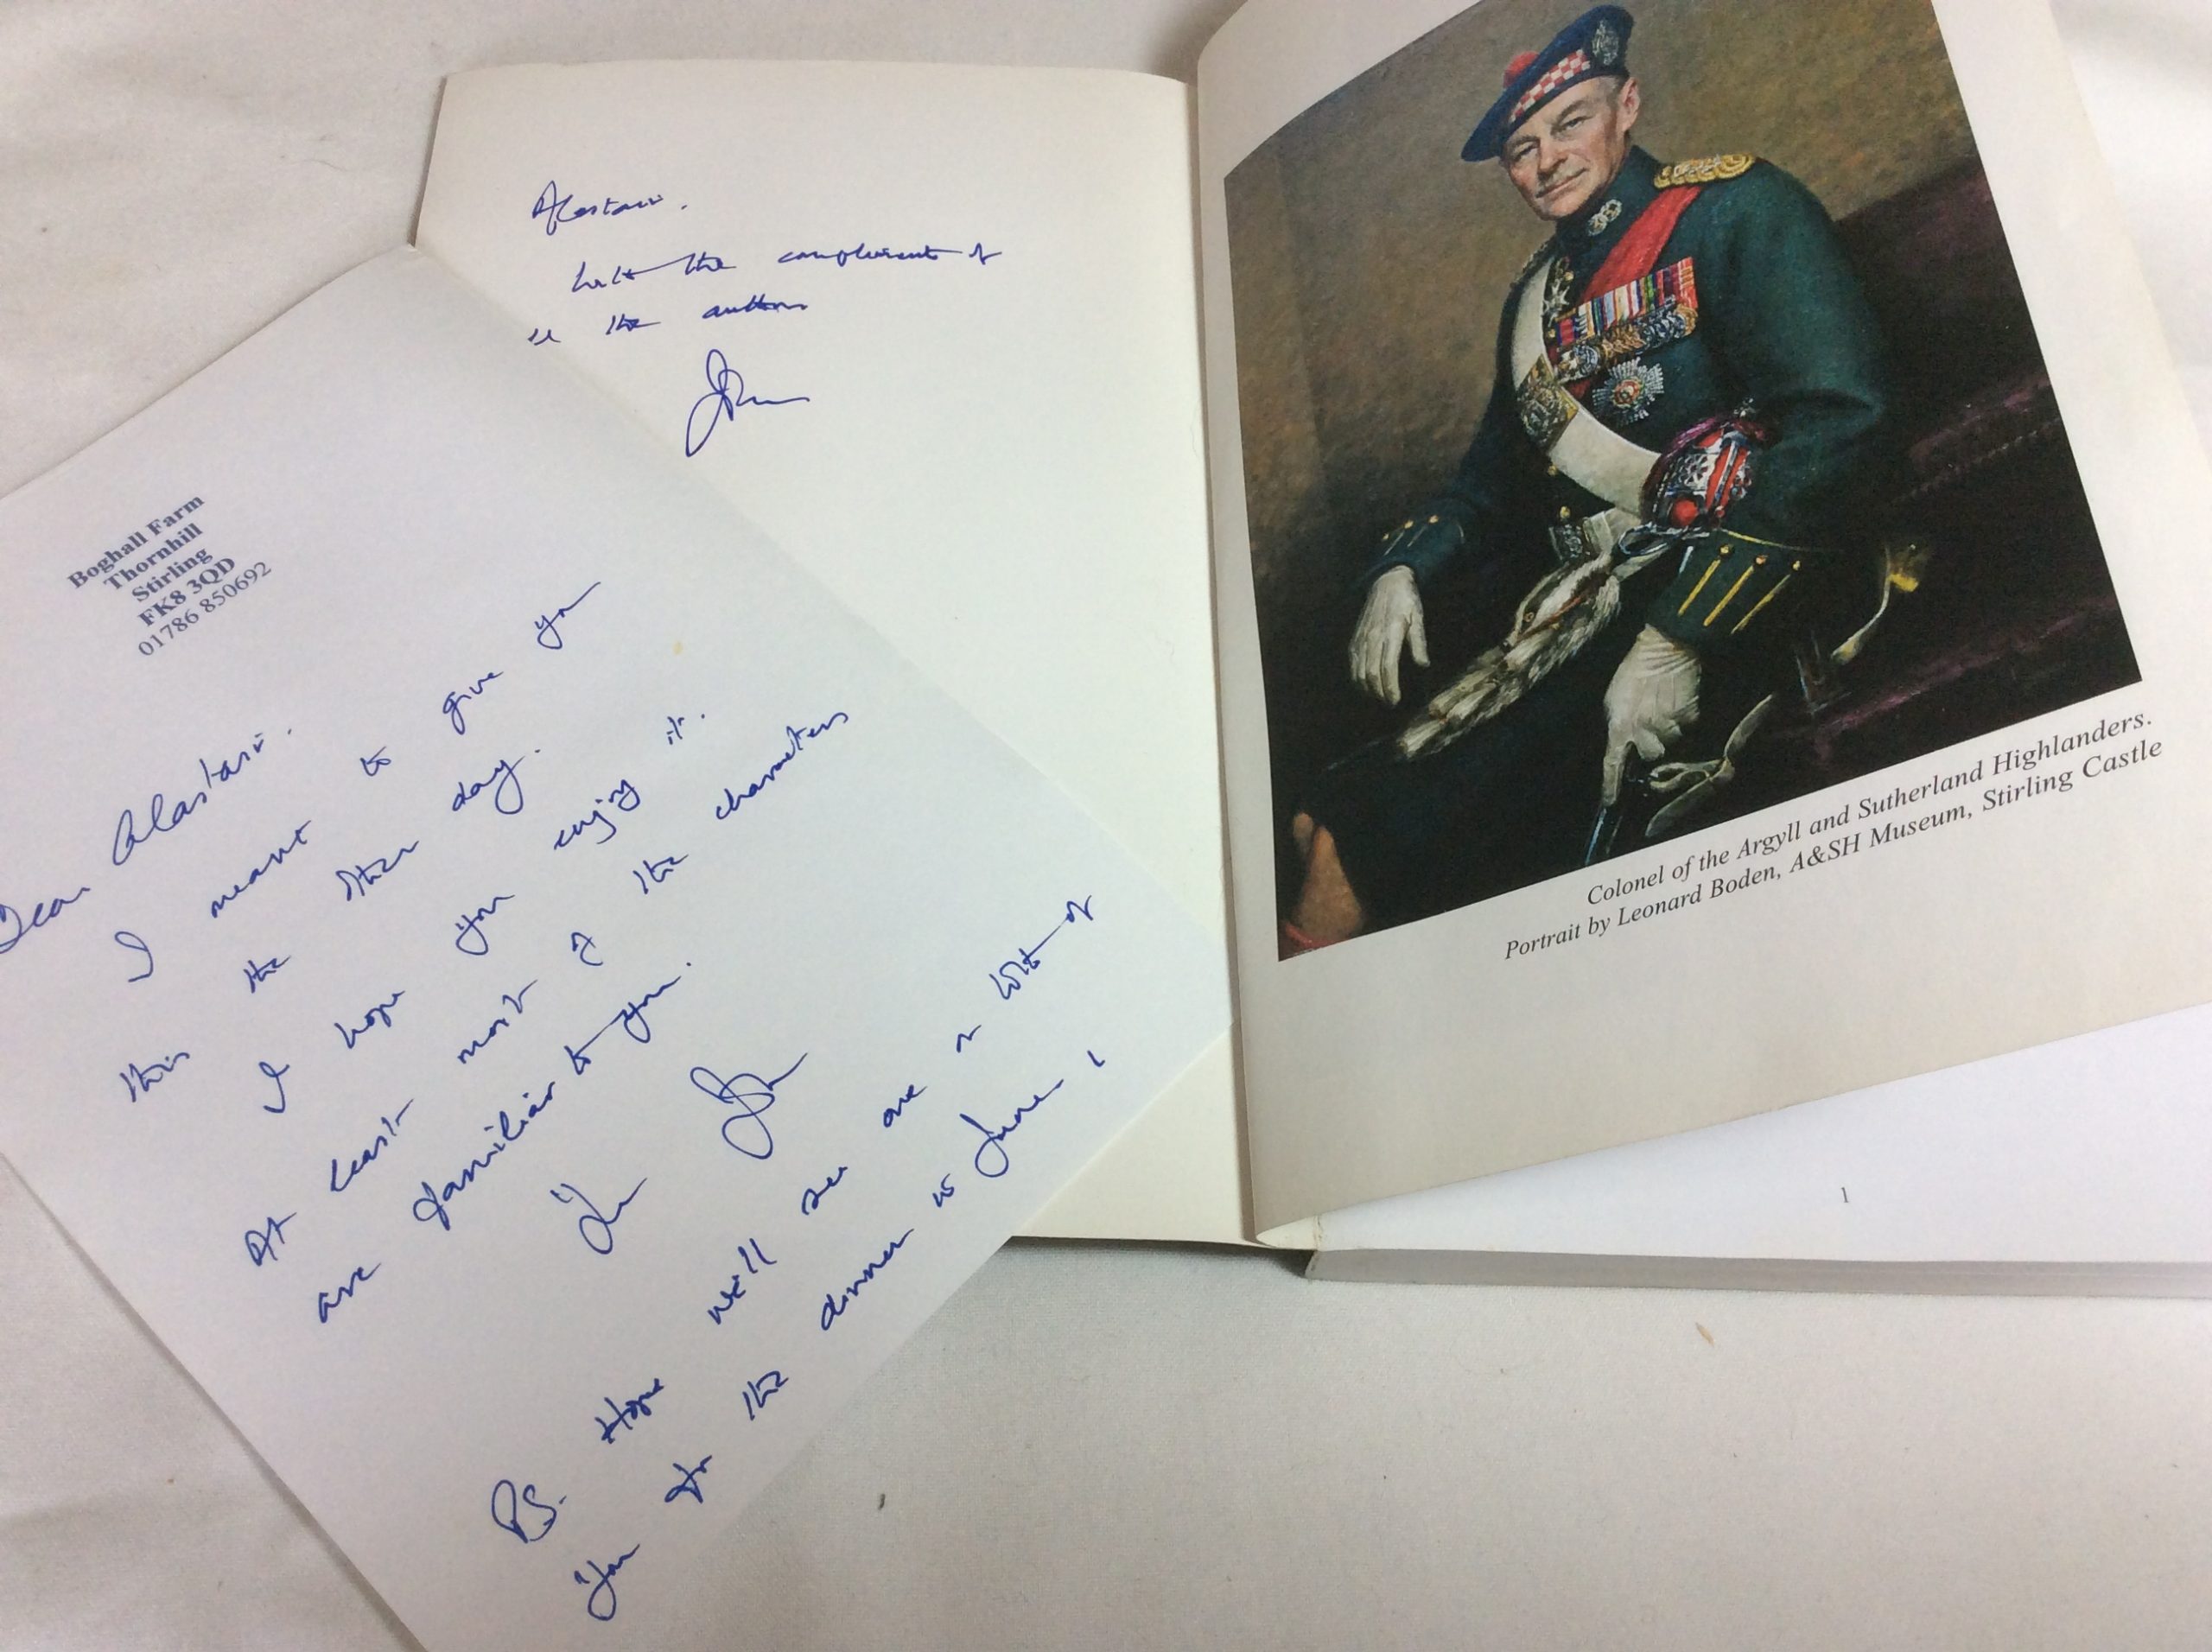 Alastair.
With the compliments of
the author
John
Boghall Farm
Thornhill
Stirling
FK8 3QD
01786 850692
Dear Alastair.
I meant to give you
this the other day.
I hope you enjoy it.
At least most of the characters
are familiar to you.
Yrs John
PS. Hope we'll see one or both of
you for the dinner in June!
Colonel of the Argyll and Sutherland Highlanders.
Portrait by Leonard Boden, A&SH Museum, Stirling Castle
1